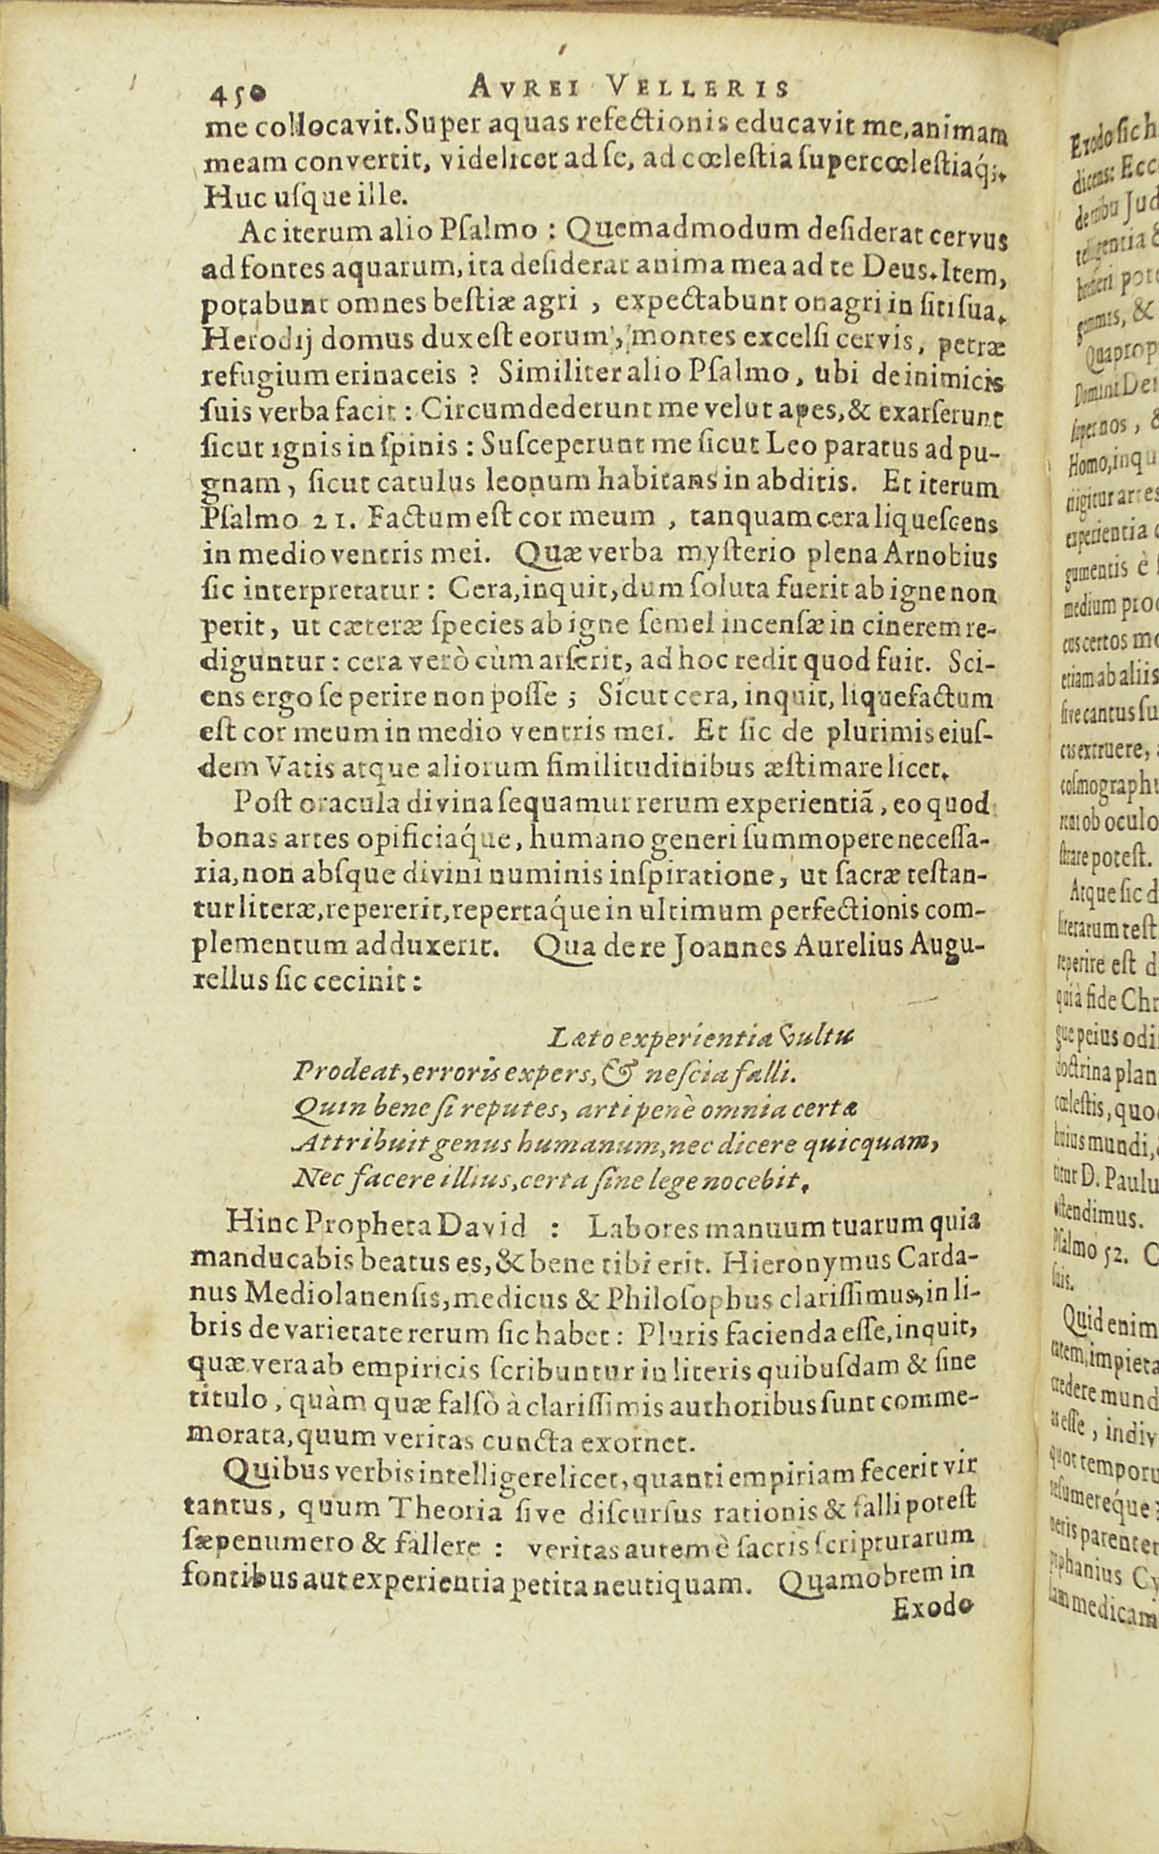 450 AVREI VELLERIS
me collocavit. Super aquas refectionis educavit me, animam
meam convertit, videlicet ad se, ad cœlestia supercœlestiaq́;.
Huc usque ille.
Ac iterum alio Psalmo : Quemadmodum desiderat cervus
ad fontes aquarum, ita desiderat anima mea ad te Deus. Item,
potabunt omnes bestiæ agri , expectabunt onagri in siti sua.
Herodij domus dux est eorum, montes excelsi cervis, petræ
refugium erinaceis ? Similiter alio Psalmo, ubi de inimicis
suis verba facit : Circumdederunt me velut apes, & exarserunt
sicut ignis in spinis : Susceperunt me sicut Leo paratus ad pu-
gnam, sicut catulus leonum habitans in abditis. Et iterum
Psalmo 21. Factum est cor meum , tanquam cera liquescens
in medio ventris mei. Quæ verba mysterio plena Arnobius
sic interpretatur : Cera, inquit, dum soluta fuerit ab igne non
perit, ut cæteræ species ab igne semel incensæ in cinerem re-
diguntur : cera verò cùm arserit, ad hoc redit quod fuit. Sci-
ens ergo se perire non posse ; Sicut cera, inquit, liquefactum
est cor meum in medio ventris mei. Et sic de plurimis eius-
dem Vatis atque aliorum similitudinibus æstimare licet.
Post oracula divina sequamur rerum experientiã, eo quod
bonas artes opificiáque, humano generi summopere necessa-
ria, non absque divini numinis inspiratione, ut sacræ testan-
tur literæ, repererit, repertáque in ultimum perfectionis com-
plementum adduxerit. Qua de re Joannes Aurelius Augu-
rellus sic cecinit :
Læto experientia vultu
Prodeat, erroris expers, & nescia falli.
Quin bene si reputes, arti penè omnia certæ
Attribuit genus humanum, nec dicere quicquam,
Nec facere illius, certa sine lege nocebit.
Hinc Propheta David : Labores manuum tuarum quia
manducabis beatus es, & bene tibi erit. Hieronymus Carda-
nus Mediolanensis, medicus & Philosophus clarissimus, in li-
bris de varietate rerum sic habet : Pluris facienda esse, inquit,
quæ vera ab empiricis scribuntur in literis quibusdam & sine
titulo, quàm quæ falsò à clarissimis authoribus sunt comme-
morata, quum veritas cuncta exornet.
Quibus verbis intelligere licet, quanti empiriam fecerit vir
tantus, quum Theoria sive discursus rationis & falli potest
sæpenumero & fallere : veritas autem è sacris scripturarum
fontibus aut experientia petita neutiquam. Quamobrem in
Exodo
Exodo sic h
dicens: Ecc
de tribu Jud
telligentia &
gummis, &
Quaprop
Domini De
supernos, &
Homo, inqu
experientia
gumentis è
medium pro
cus certos mo
etiam ab aliis
sive cantus su
cosmograph
strare potest.
Atque sic d
literarum test
reperire est d
qui à fide Chr
gue peius odi
doctrina plan
cœlestis, quo
huius mundi,
titur D. Paulu
ostendimus.
Psalmo 52. C
suis.
Quid enim
tatem, impieta
credere mund
as esse, indiv
quot temporu
resumereque
neris parenter
piphanius Cy